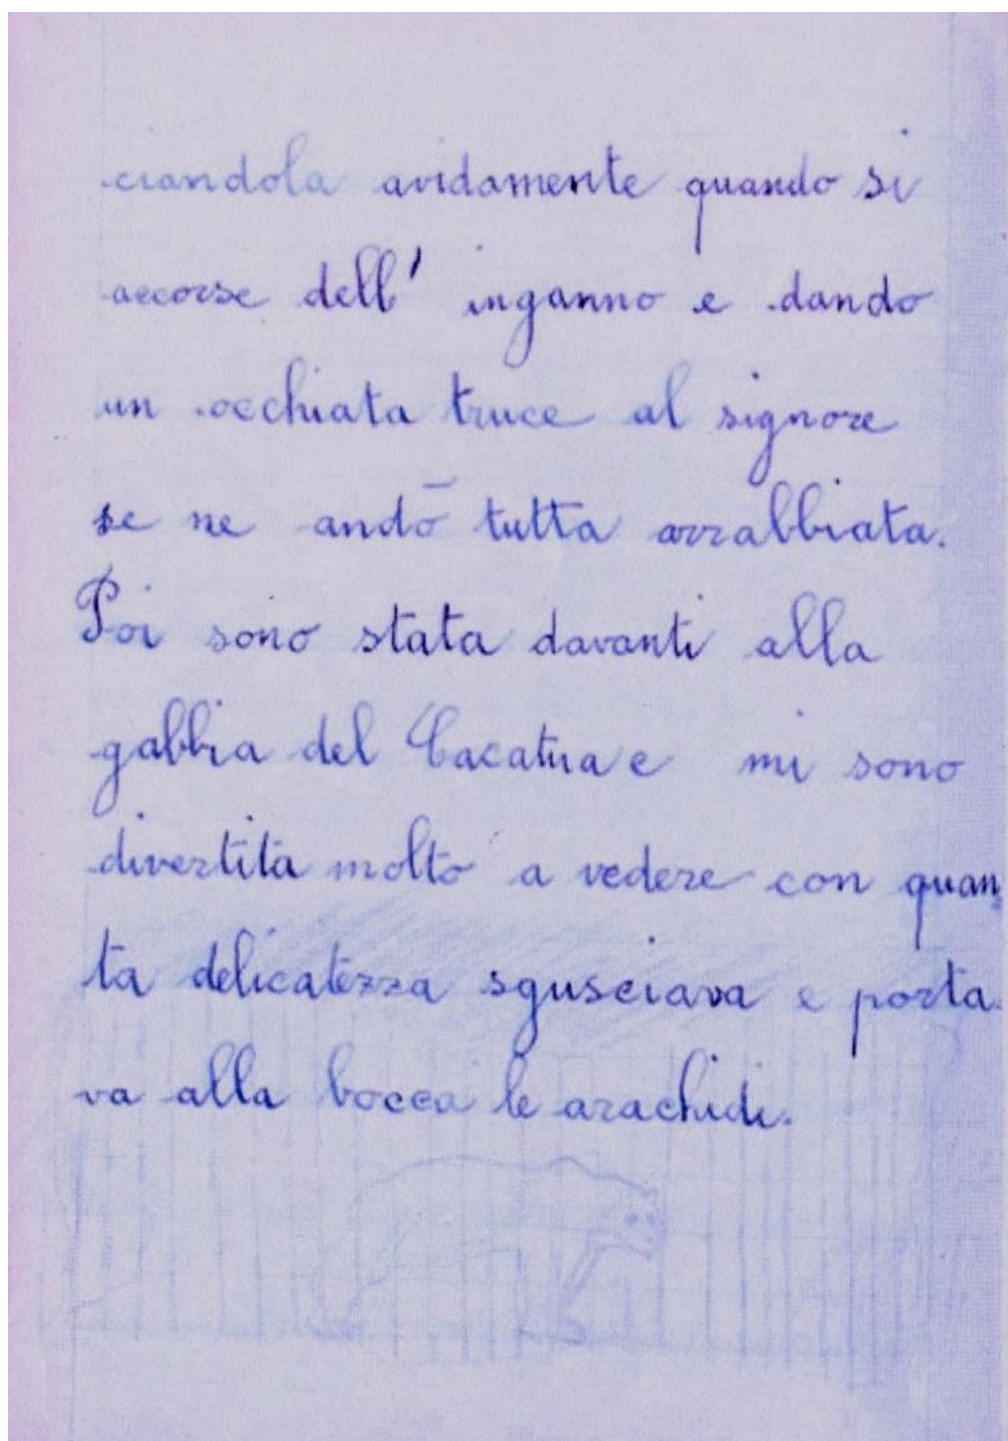 ciandola avidamente quando si
accorse dell' inganno e dando
un occhiata truce al signore
se ne andò tutta arrabbiata.
Poi sono stata davanti alla
gabbia del Cacatua e mi sono
divertita molto a vedere con quan
ta delicatezza sgusciava e porta
va alla bocca le arachidi.